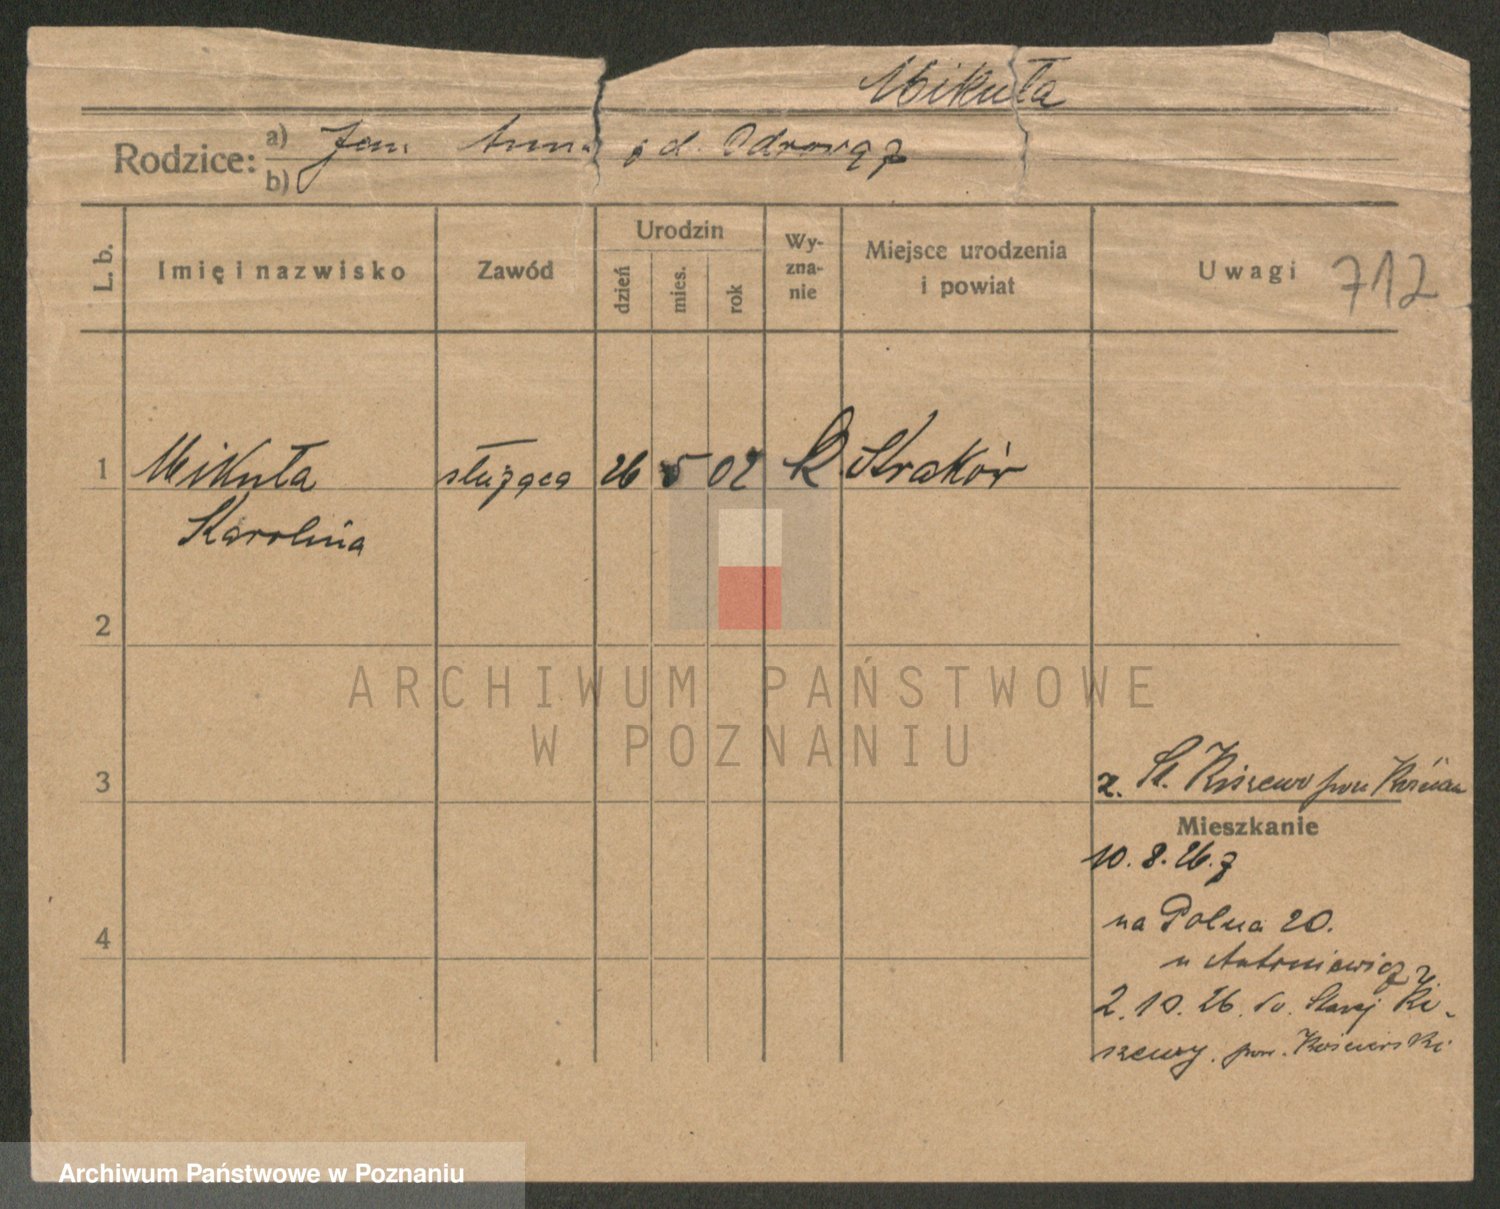 Mikuła
Rodzice: a) Jan Anna
b) od. Odrowąż
L. b. Imię i nazwisko Zawód Urodzin dzień mies. rok Wy-zna-nie Miejsce urodzenia i powiat Uwagi 712
1 Mikuła służąca 26 5 02 k Kraków
Karolina
2
3
z. St. Kiszewo pow Kościan
Mieszkanie
10. 8. 26. z
na Polna 20.
4
u Antoniewicz
2. 10. 26. do Starej Ki-
szewy. pow. Kościerski
ARCHIWUM PAŃSTWOWE
W POZNANIU
Archiwum Państwowe w Poznaniu